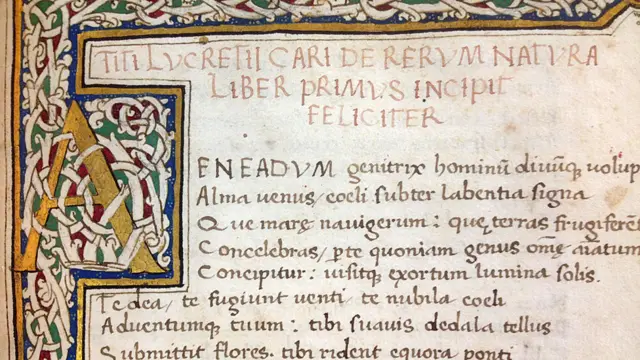 TITI LUCRETII CARI DE RERVM NATURA
LIBER PRIMUS INCIPIT
FELICITER
AENEADVM genitrix hominũ diuũq; uolup
Alma uenus/ coeli subter labentia signa
Que mare nauigerum: quę terras frugiferẽt
Concelebras/ p te quoniam genus omẽ aĩatum
Concipitur: uisitq; exortum lumina solis.
Te dea/ te fugiunt uenti te nubila coeli
Aduentumq; tuum: tibi suauis dedala tellus
Submittit flores. tibi rident equora ponti